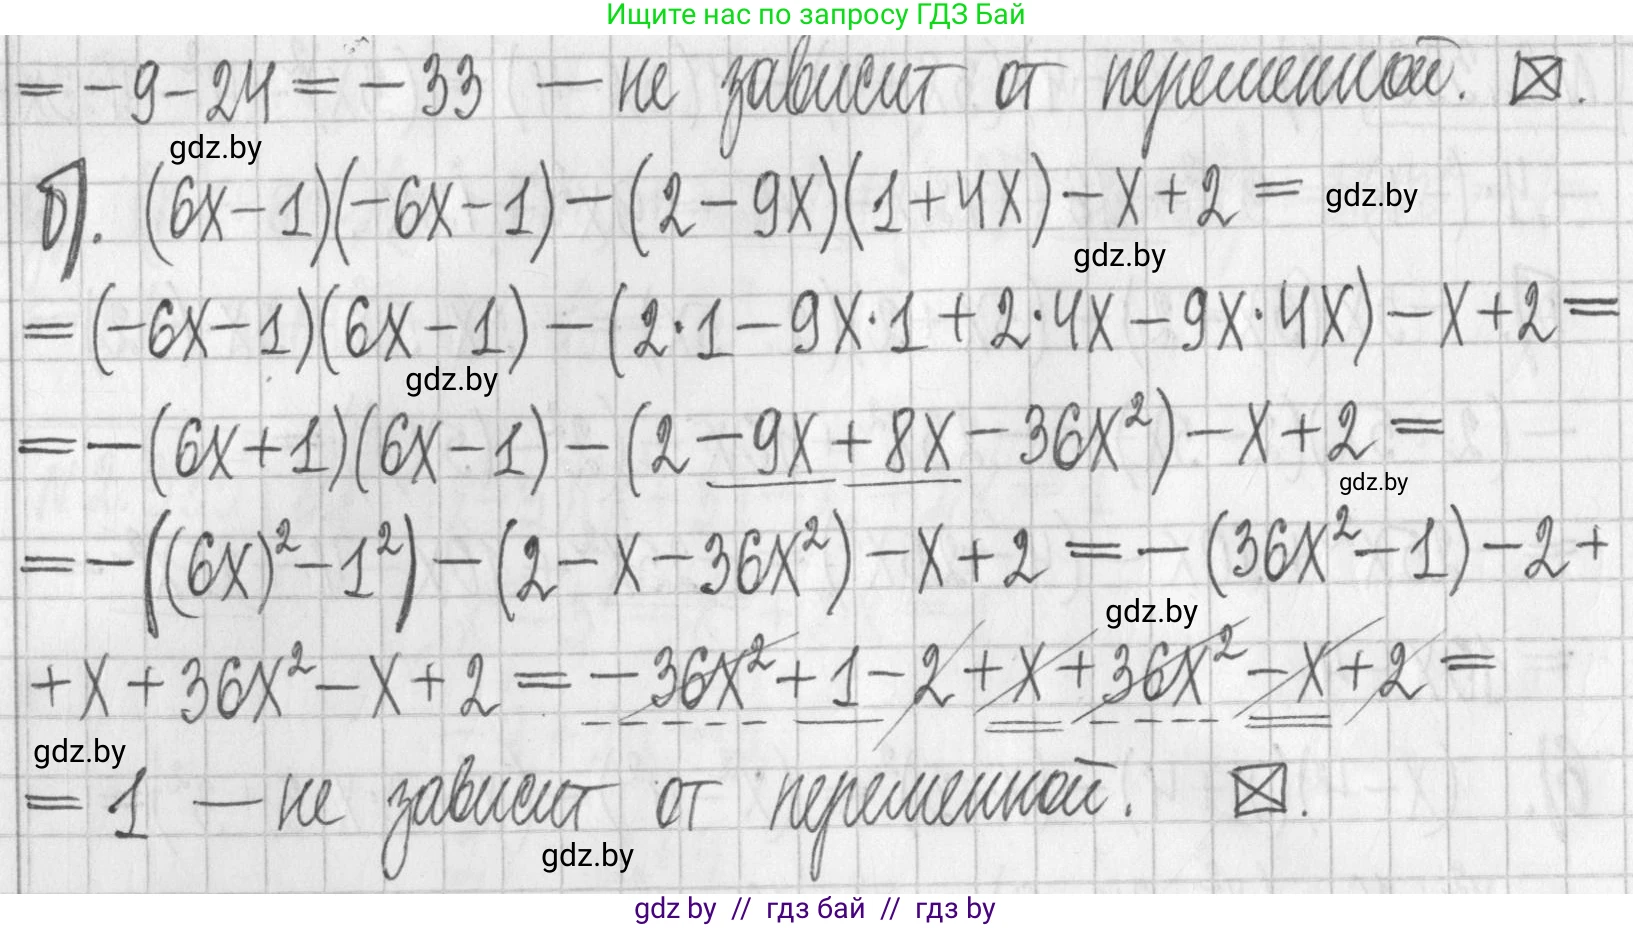 Ищите нас по запросу ГДЗ Бай
= -9-24 = -33 — не зависит от переменной. ⊠.
gdz.by
б). (6x-1)(-6x-1)-(2-9x)(1+4x)-x+2 = gdz.by
gdz.by
= (-6x-1)(6x-1)-(2·1-9x·1+2·4x-9x·4x)-x+2 =
gdz.by
= -(6x+1)(6x-1)-(2-9x+8x-36x²)-x+2 =
gdz.by
= -((6x)²-1²)-(2-x-36x²)-x+2 = -(36x²-1)-2+
gdz.by
+x+36x²-x+2 = -36x²+1-2+x+36x²-x+2 =
gdz.by
= 1 — не зависит от переменной. ⊠.
gdz.by
gdz by // гдз бай // гдз by